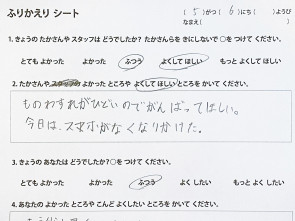 ふりかえり シート
( 5 )がつ( 6 )にち( )ようび
なまえ(
1. きょうの たかさんや スタッフは どうでしたか? たかさんらを きにしないで ○を つけて ください。
とても よかった よかった ふつう よくして ほしい もっと よくして ほしい
2. たかさんや スタッフの よかった ところや よくして ほしい ところを かいて ください。
ものわすれがひどいのでがんばってほしい。
今日は、スマホがなくなりかけた。
3. きょうの あなたは どうでしたか?○を つけて ください。
とても よかった よかった ふつう よく したい もっと よく したい
4. あなたの よかった ところや こんど よくしたい ところを かいて ください。